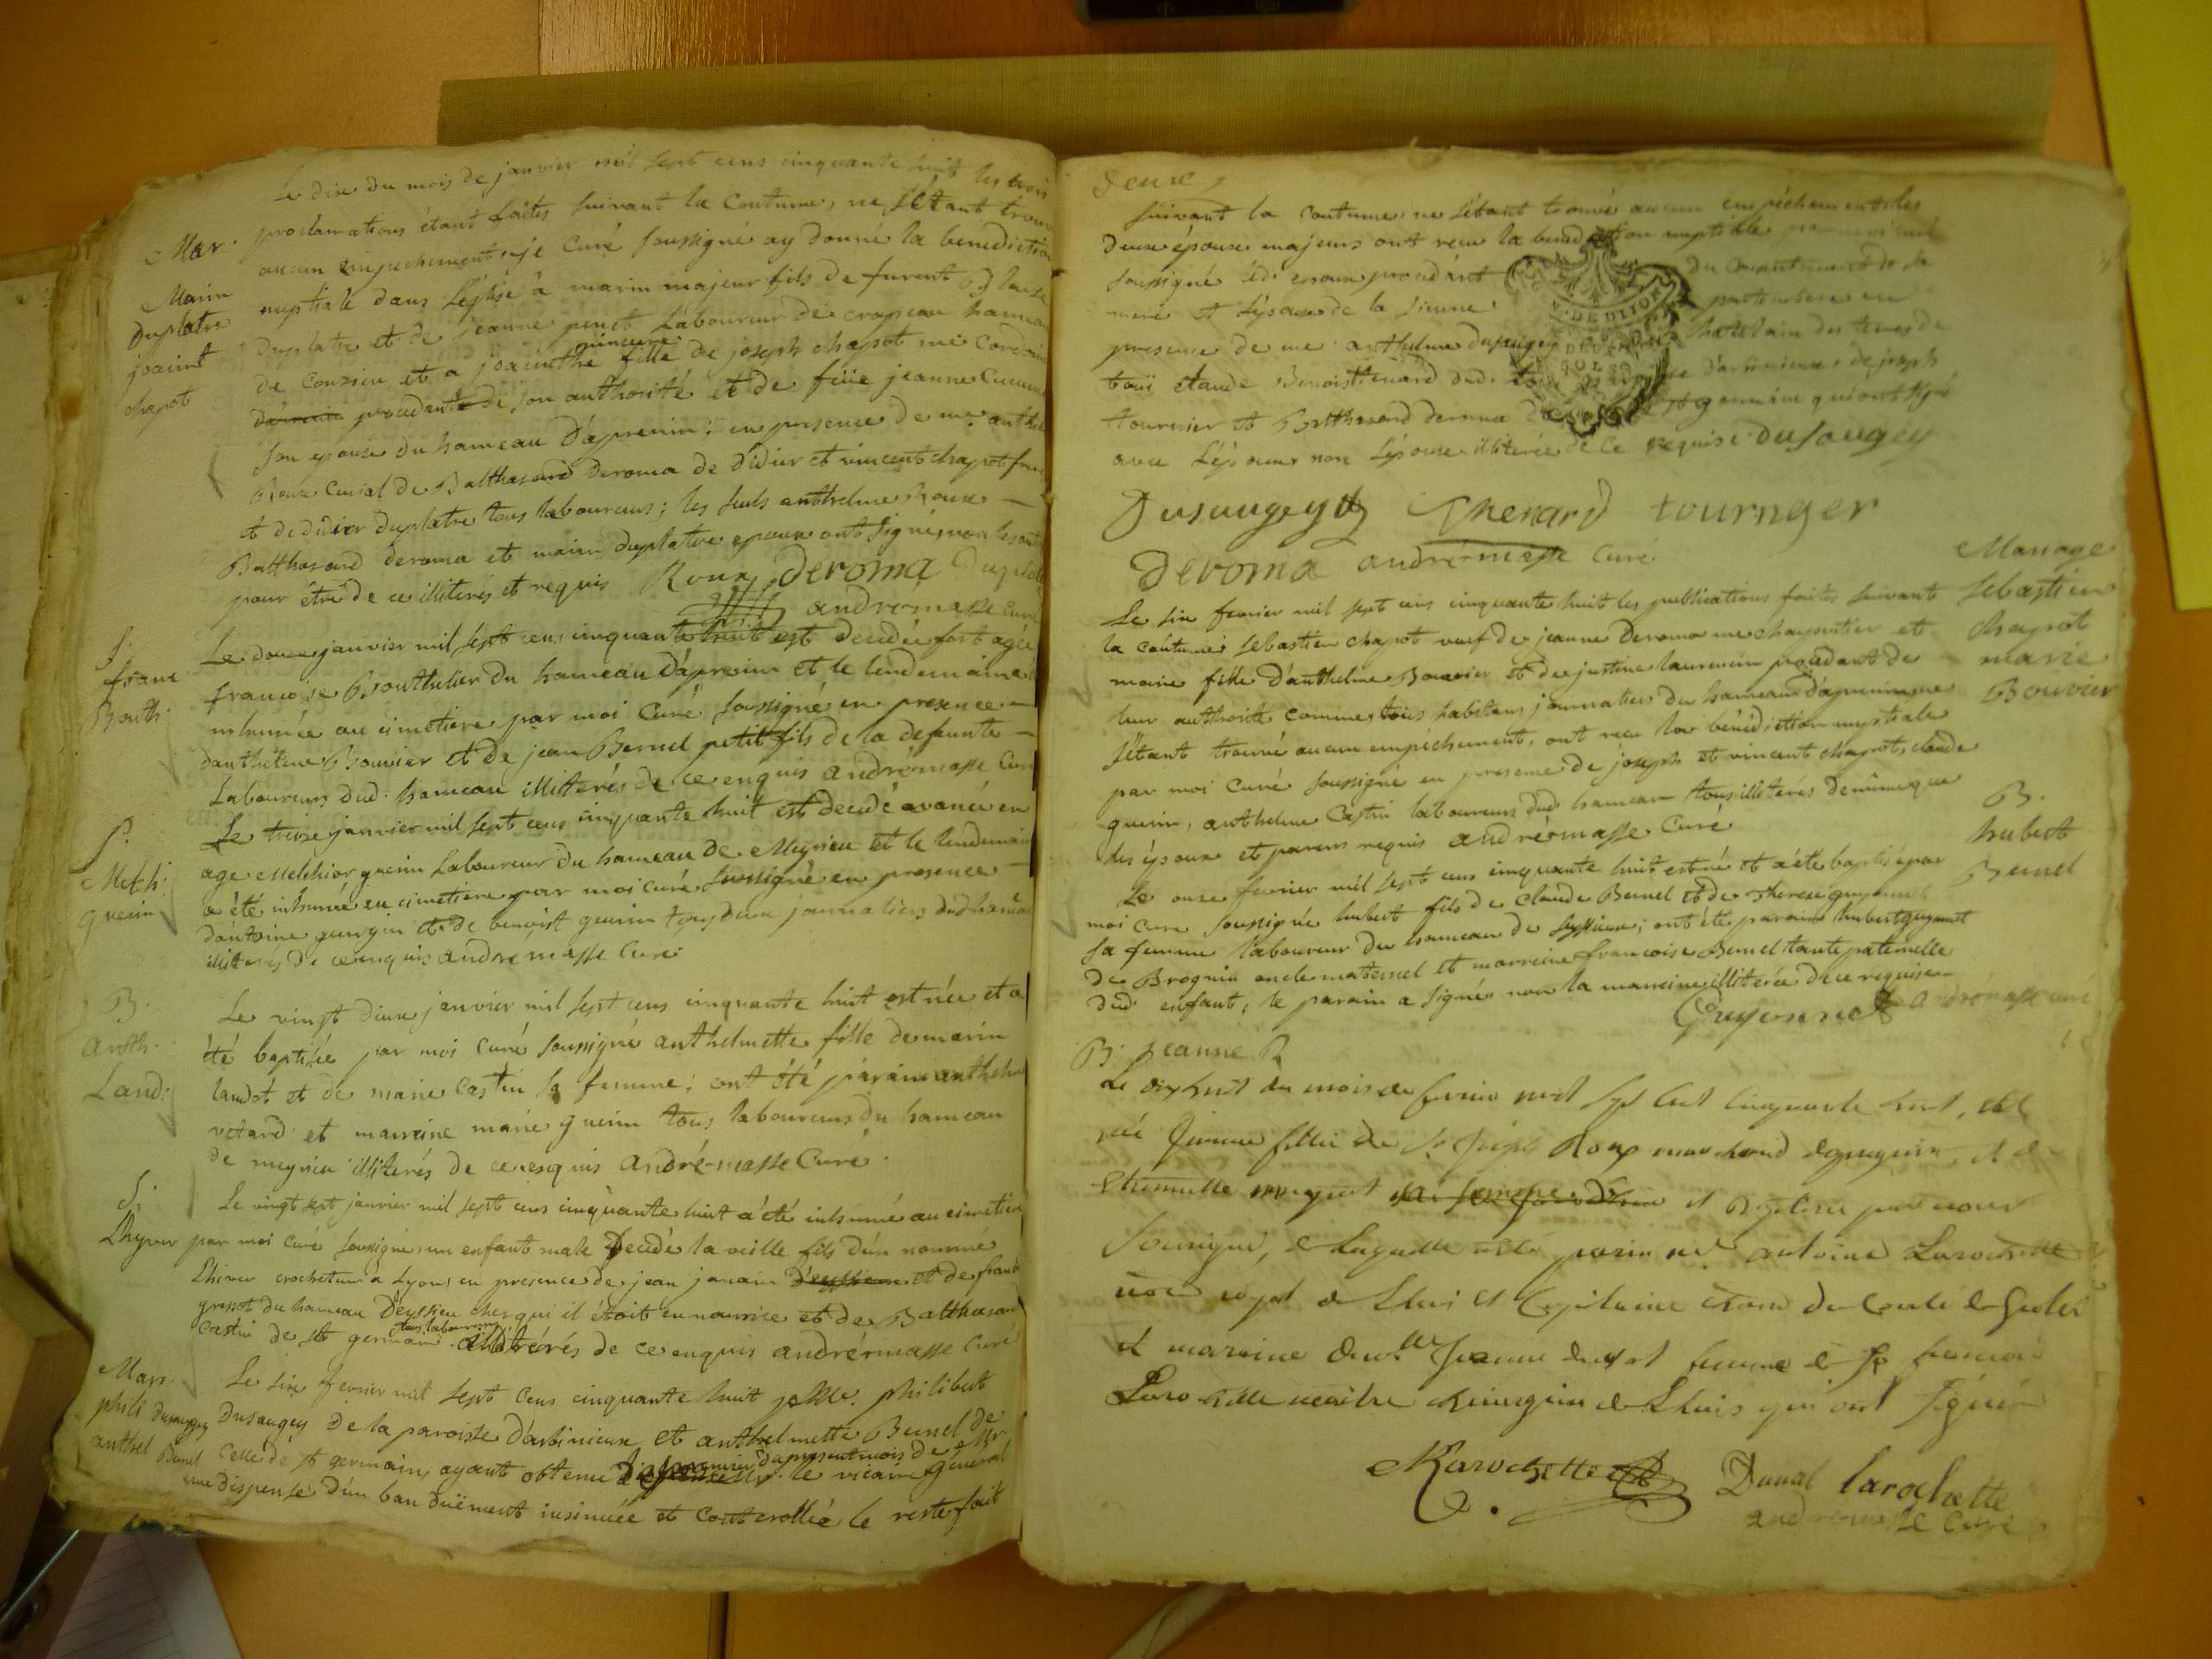 Le dix du mois de janvier mil sept cens cinquante huit les trois
proclamations étant faites suivant la Coutume, ne s'étant trouvé
aucun empechement, je Curé soussigné ay donné la benediction
nuptiale dans l'église à marin majeur fils de furent
duplatre et de jeanne laboureur de crapeau hameau
de Conzieu et a joacinthe mineure fille de joseph chapot me Cordonier
procedante de son authorité et de füe jeanne
son epouse du hameau d'apremin; en presence de me anthel
Roux de Balthasard deroma de didier et vincent chapot freres
et de didier duplatre tous laboureurs; les seuls anthelme Roux
Balthasard deroma et marin duplatre epoux ont signé non les autres
pour être de ce illiterés et requis Roux deroma Duplatre
andrémasse Curé
Mar.
Marin
duplatre
joacint
chapot
Le douze janvier mil sept cens cinquante huit est decedée fort agée
françoise Bouthelier du hameau d'apremin et le lendemain a été
inhumée au cimetiere par moi Curé soussigné en presence
d'anthelme Bouvier et de jean Bernel petit fils de la defunte
Laboureurs dud. hameau illiterés de ce enquis andrémasse Curé
S.
franc
Bouth:
Le treize janvier mil sept cens cinquante huit est decedé avancé en
age Melchior guerin Laboureur du hameau de Meyrieu et le lendemain
a été inhumé au cimetiere par moi curé soussigné en presence
d'antoine et de benoist guerin tous deux journaliers dud hameau
illiterés de ce enquis andrémasse Curé
S.
Melch:
guerin
Le vingt deux janvier mil sept cens cinquante huit est née et a
été baptisée par moi curé soussigné anthelmette fille de marin
landot et de marie Castin sa femme; ont été parain anthelme
vetard et marreine marie guerin tous laboureurs du hameau
de meyrieu illiterés de ce enquis andrémasse Curé
B.
Anth.
Land:
Le vingt sept janvier mil sept cens cinquante huit a été inhumé au cimetiere
par moi curé soussigné un enfant male decedé la veille fils d'un nommé
Lhiver crocheteur à Lyon, en presence de jean janain et de franç
du hameau d'eyssieu chez qui il étoit en nourrice et de Balthasard
Castin de st germain tous laboureurs illiterés de ce enquis andrémasse Curé
S.
Lhyver
Le six fevrier mil sept cens cinquante huit philibert
Dusaugey de la paroisse d'arbinieux et anthelmette Bernel de
celle de st germain, ayant obtenu du present mois de Mr. le vicaire général
une dispense d'un ban duëment insinuée et Controllée le reste fait
Marr.
phili Dusaugey
anthel Bernel
deux
suivant la coutume ne s'étant trouvé aucun empéchement les
deux époux majeurs ont reçu la benediction nuptiale par moi curé
soussigné led. epoux procedant du consentement de sa
mere et l'épouse de la sienne
presence de me anthelme dusaugey chatelain des terres de
Claude Benoist Thenard d'arbinieux, de joseph
tournier et Balthasard deroma de st germain qui ont signé
avec l'époux non l'épouse illiterée de ce requise. dusaugey
Dusaugey Thenard tournyer
Deroma andrémasse Curé
Le six fevrier mil sept cens cinquante huit les publications faites suivant
la coutume, sebastien chapot veuf de jeanne Deroma me charpentier et
marie fille d'anthelme Bouvier et de justine laurencin procedant de
leur authorité comme tous habitans journaliers du hameau d'apremin ne
s'étant trouvé aucun empéchement, ont recu la bénédiction nuptiale
par moi Curé soussigné en presence de joseph et vincent chapot, claude
guerin, anthelme Castin laboureurs dud. hameau tous illiterés de même que
les époux et parens requis andrémasse Curé
Mariage
Sebastien
chapot
marie
Bouvier
Le onze fevrier mil sept cens cinquante huit est né et a été baptisé par
moi Curé soussigné hubert fils de claude Bernel et de Therese guyonnet
sa femme laboureur du hameau de ; ont été parain hubert guyonnet
de Brognin oncle maternel et marreine francoise Bernel tante paternelle
dud' enfant, le parain a signé non la marreine illiterée de ce requise
Guyonnet andrémasse curé
B.
hubert
Bernel
B. jeanne R
Le dix huit du mois de fevrier mil sept cent cinquante huit, est
née Jeanne fille de Sr Joseph Roux marchand et de
et Baptisée par nous
soussigné, de laquelle a été parin me antoine Larochette
royal de Lhuis et Capitaine
et mareine Jeanne femme de Sr
Larochette maitre chirurgien de Lhuis qui ont signé
Larochette Dunal larochette
andrémasse Curé